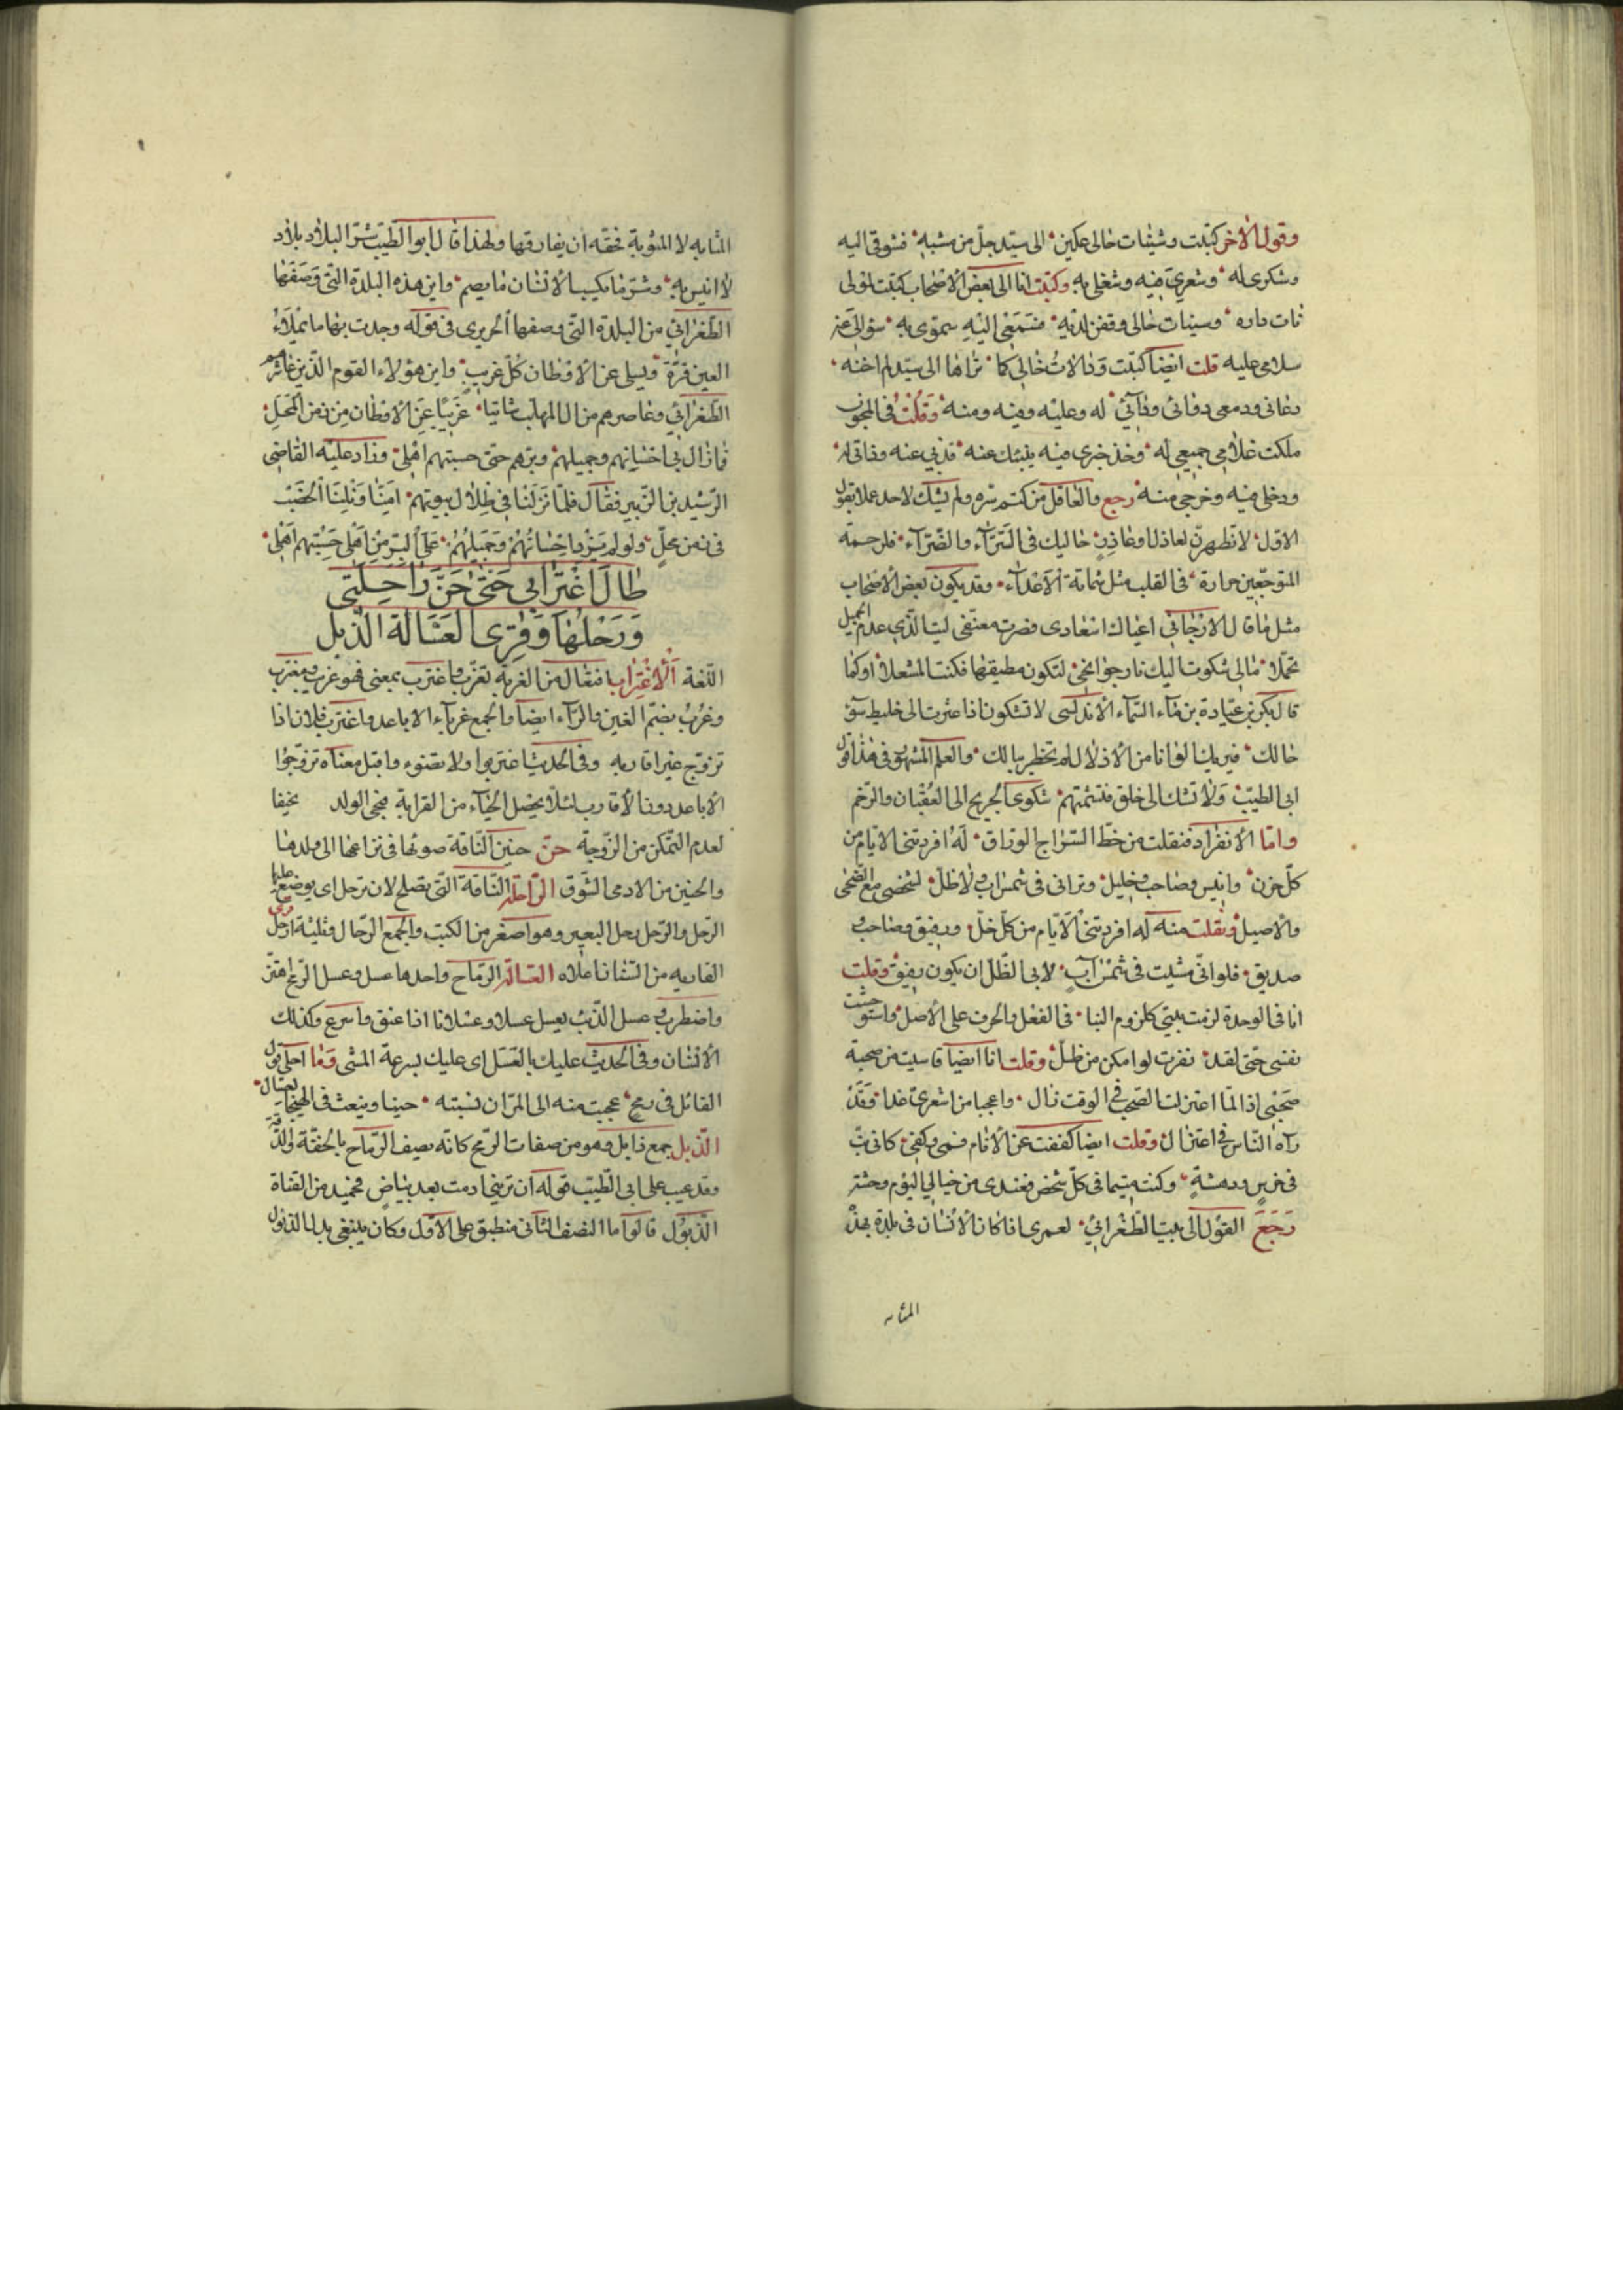 وقول الآخر كتبت وشينات حالى حكين الى سيد جل من مشبه فشوقى اليه
وشكرى له وشعرى فيه وشغلى به وكتبت انا الى بعض الاصحاب كتبت لمولى
داره وسينات حالى وقفن لديه سمعى اليه سموى به سؤالى عنه
سلامى عليه قلت ايضا كتبت ودالات حالى كما تراها الى سيد لم اخنه
دعائى ودمعى دوائى ودائى له وعليه وفيه ومنه وقلت فى المجون
ملكت غلامى جميعى له وخذ خبرى فيه ينبئك عنه
ودخلى فيه وخرجى منه رجع والعاقل من كتم سره ولم يشك لاحد عملا بقول
الاول لا تظهرن لعاذل او عاذر حاليك فى السراء والضراء فلرحمة
المتوجعين حرارة فى القلب مثل شماتة الاعداء وقد يكون بعض الاصحاب
مثل ما قال الارجانى اعياك اسعادى فصرت معنفى ليت الذى عدم الجميل
تجملا مالى شكوت اليك نار جوانحى لتكون مطفيها فكنت المشعلا او كما
قال بكر بن عبادة بن ماء السماء الاندلسى لا تشكون اذا عثرت الى خليط سوء
حالك فيريك الوانا من الاذلال لم تخطر ببالك والعلم المشهور فى هذا قول
ابى الطيب ولا تشك الى خلق فتشمتهم شكوى الجريح الى العقبان والرخم
واما الانفراد فنقلت من خط السراج الوراق له افردتنى الايام من
كل خدن وانيس وصاحب وخليل وترانى فى شمس آب ولا ظل لشخصى مع الضحى
والاصيل ونقلت منه له افردتنى الايام من كل خل ورفيق وصاحب و
صديق فلو انى مشيت فى شمس آب لابى الظل ان يكون رفيق وقلت
انا فى الوحدة لزمت بيتى كلزوم البنا فى الفعل والحرف على الاصل واستوحشت
نفسى حتى لقد نفرت لو امكن من ظل وقلت انا ايضا قاسيت من صحبة
صحبى اذا لما اعتزلت الصحب فى الوقت زال واعجبا من اشعرى غدا وقد
رآه الناس فى اعتزال وقلت ايضا كففت عن الانام فمى وكفى كانى بت
فى ودهشة وكنت متيما فى كل شخص فعندى من خيالى اليوم وحشة
رجع القول الى بيت الطغرائى لعمرى اذا كان الانسان فى بلدة بهذه
المثابه
المثابه لا المثوبة فحقه ان يفارقها ولهذا قال ابو الطيب شر البلاد بلاد
لا انيس به وشر ما يكسب الانسان ما يصم واين هذه البلدة التى وصفها
الطغرائى من البلدة التى وصفها الحريرى فى قوله وجدت بها ما يملاء
العين قرة ويسلى عن الاوطان كل غريب واين هؤلاء القوم الذين عاشرهم
الطغرائى وعاصرهم من ال المهلب شاتيا غريبا عن الاوطان فى زمن المحل
فما زال بى احسانهم وجميلهم وبرهم حتى حسبتهم اهلى وزاد عليه القاضى
الرشيد بن الزبير فقال فلما نزلنا فى ظلال بيوتهم امنا ونلنا الخصب
فى زمن محل ولو لم يزد احسانهم وجميلهم على البر من اهلى حسبتهم اهلى
طال اغترابى حتى حن راحلتى
ورحلها وقرى العسالة الذبل
اللغة الاغتراب افتعال من الغربة تغرب واغترب بمعنى فهو غريب ومغترب
وغرب بضم الغين والراء ايضا والجمع غرباء الاباعد واغترب فلان اذا
تزوج غير اقاربه وفى الحديث اغتربوا ولا تضووا وقيل معناه تزوجوا
الاباعد دون الاقارب لئلا يحصل الحياء من القرابة فيجى الولد نحيفا
لعدم التمكن من الزوجة حن حنين الناقة صوتها فى نزاعها الى ولدها
والحنين من الادمى الشوق الراحلة الناقة التى تصلح لان ترحل اى يوضع عليها
الرحل والرحل رحل البعير وهو اصغر من القتب والجمع الرحال وثلثة ارحل قرى
القاريه من السنان اعلاه العسالة الرماح واحدها عسل وعسل الرمح اهتز
واضطرب و عسل الذئب يعسل عسلا وعسلانا اذا عنق واسرع وكذلك
الانسان وفى الحديث عليك بالعسل اى عليك بسرعة المشى وما احلى قول
القائل فى رمح عجبت منه الى المران نسبته حينا وينعت فى الهيجاء بعسال
الذبل جمع ذابل وهو من صفات الرمح كانه يصف الرماح بالخفة والدقة
وقد عيب على ابى الطيب قوله ان ترينى ادمت بعد بياض فحميد من القناة
الذبول قالوا اما النصف الثانى منطبق على الاول وكان ينبغى بدل الذبول